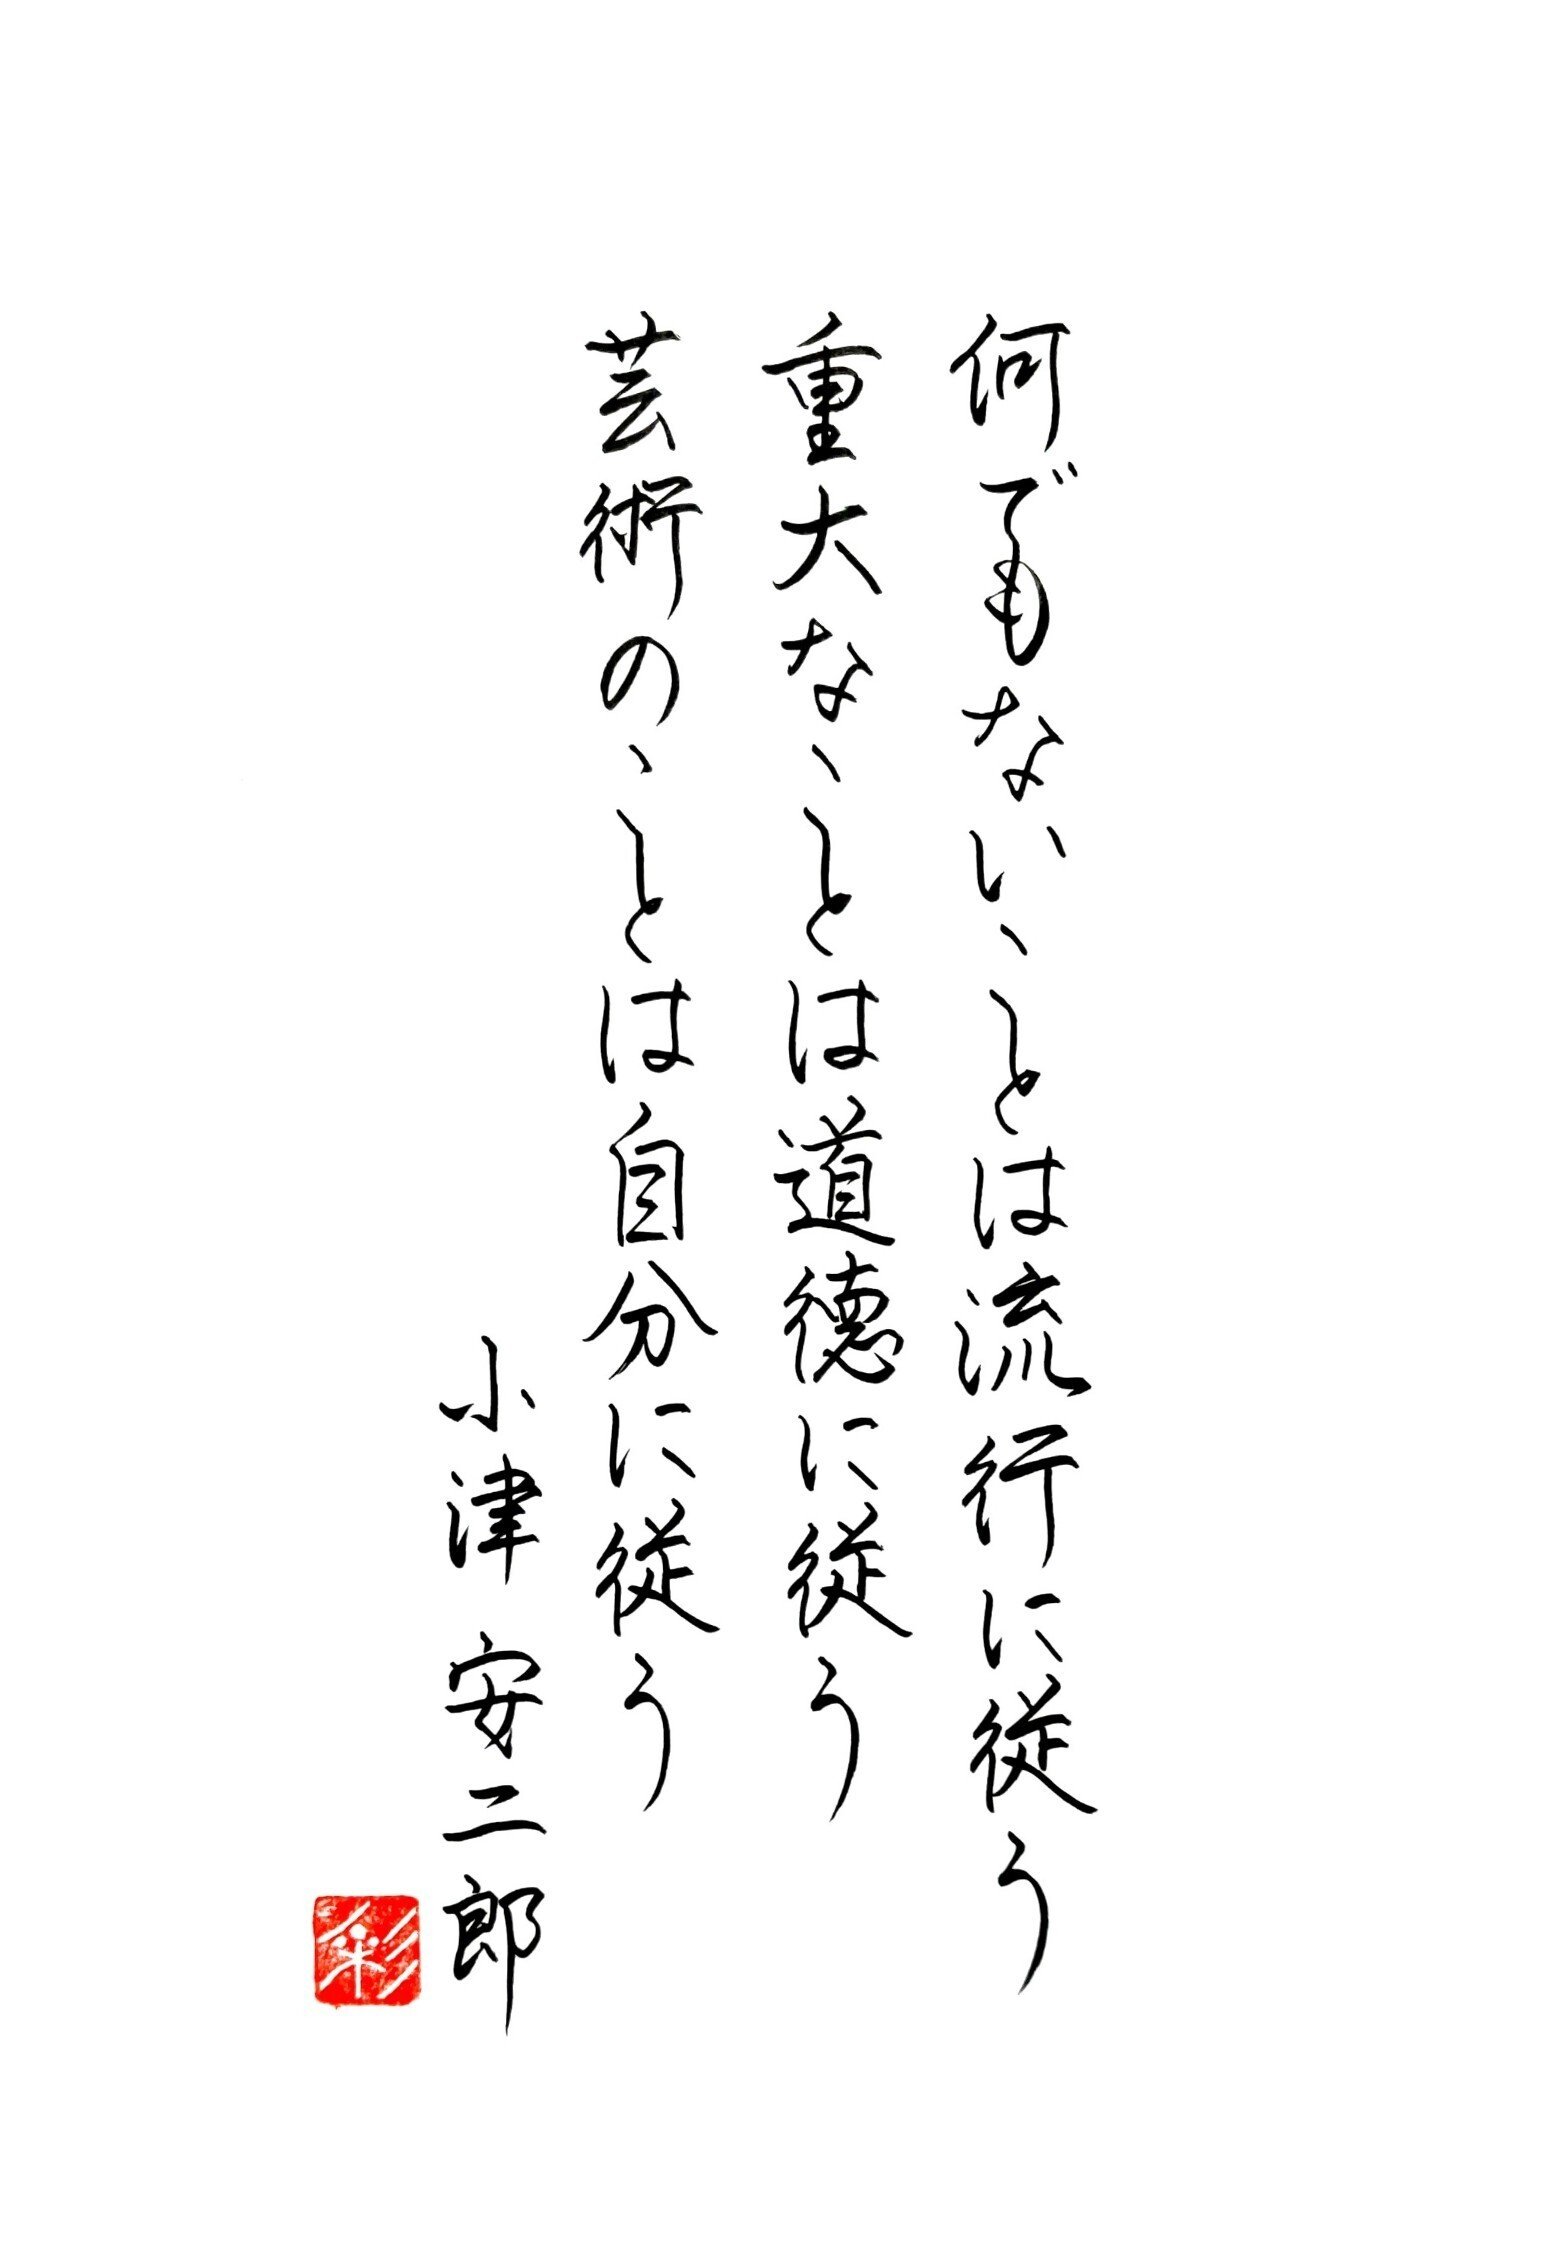 何でもないことは流行に従う
重大なことは道徳に従う
芸術のことは自分に従う
小津 安二郎
彩